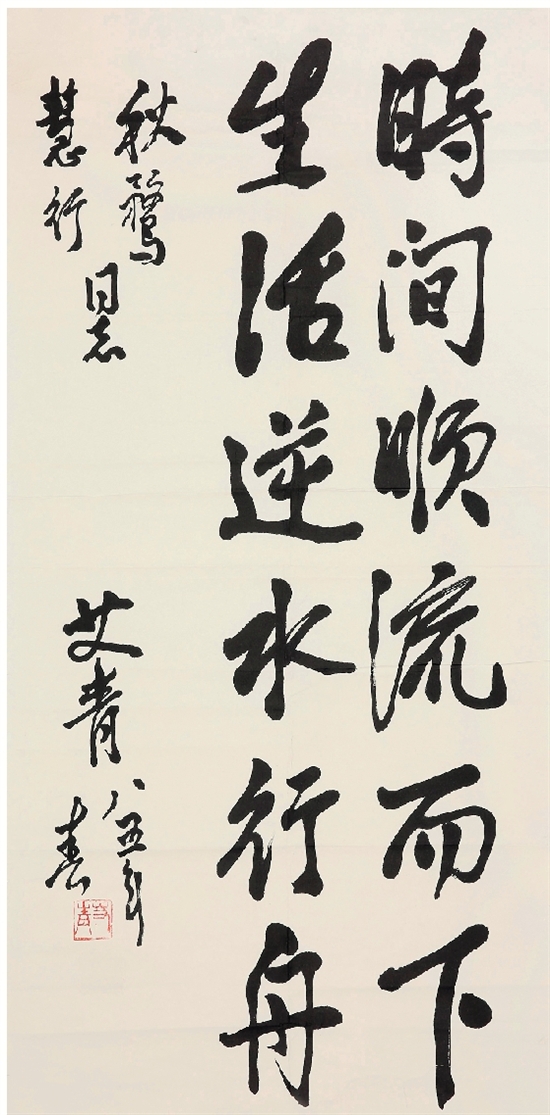 時间顺流而下
生活逆水行舟
秋鶯
慧行
同志
艾青
八五年
春
艾青